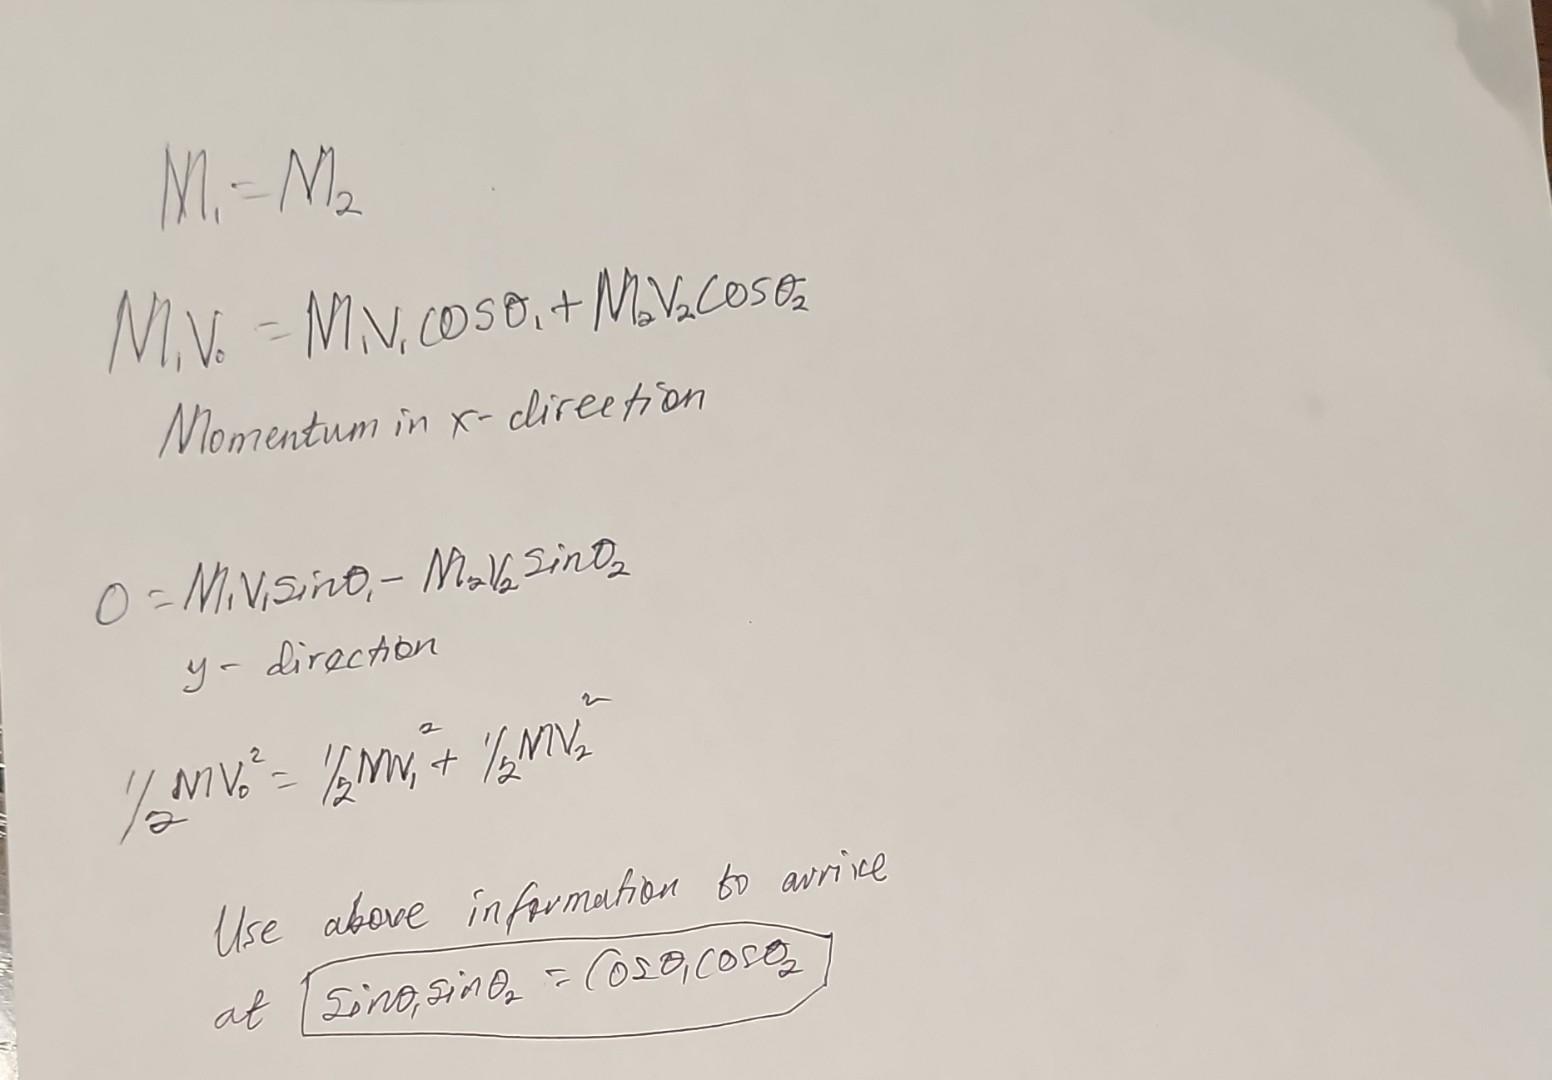 M₁ = M₂
M₁V₀ = M₁V₁ cosθ₁ + M₂V₂ cosθ₂
Momentum in x- direction
0 = M₁V₁ sinθ₁ - M₂V₂ sinθ₂
y - direction
1/2 MV₀² = 1/2 MV₁² + 1/2 MV₂²
Use above information to arrive
at sinθ₁ sinθ₂ = Cosθ₁ cosθ₂